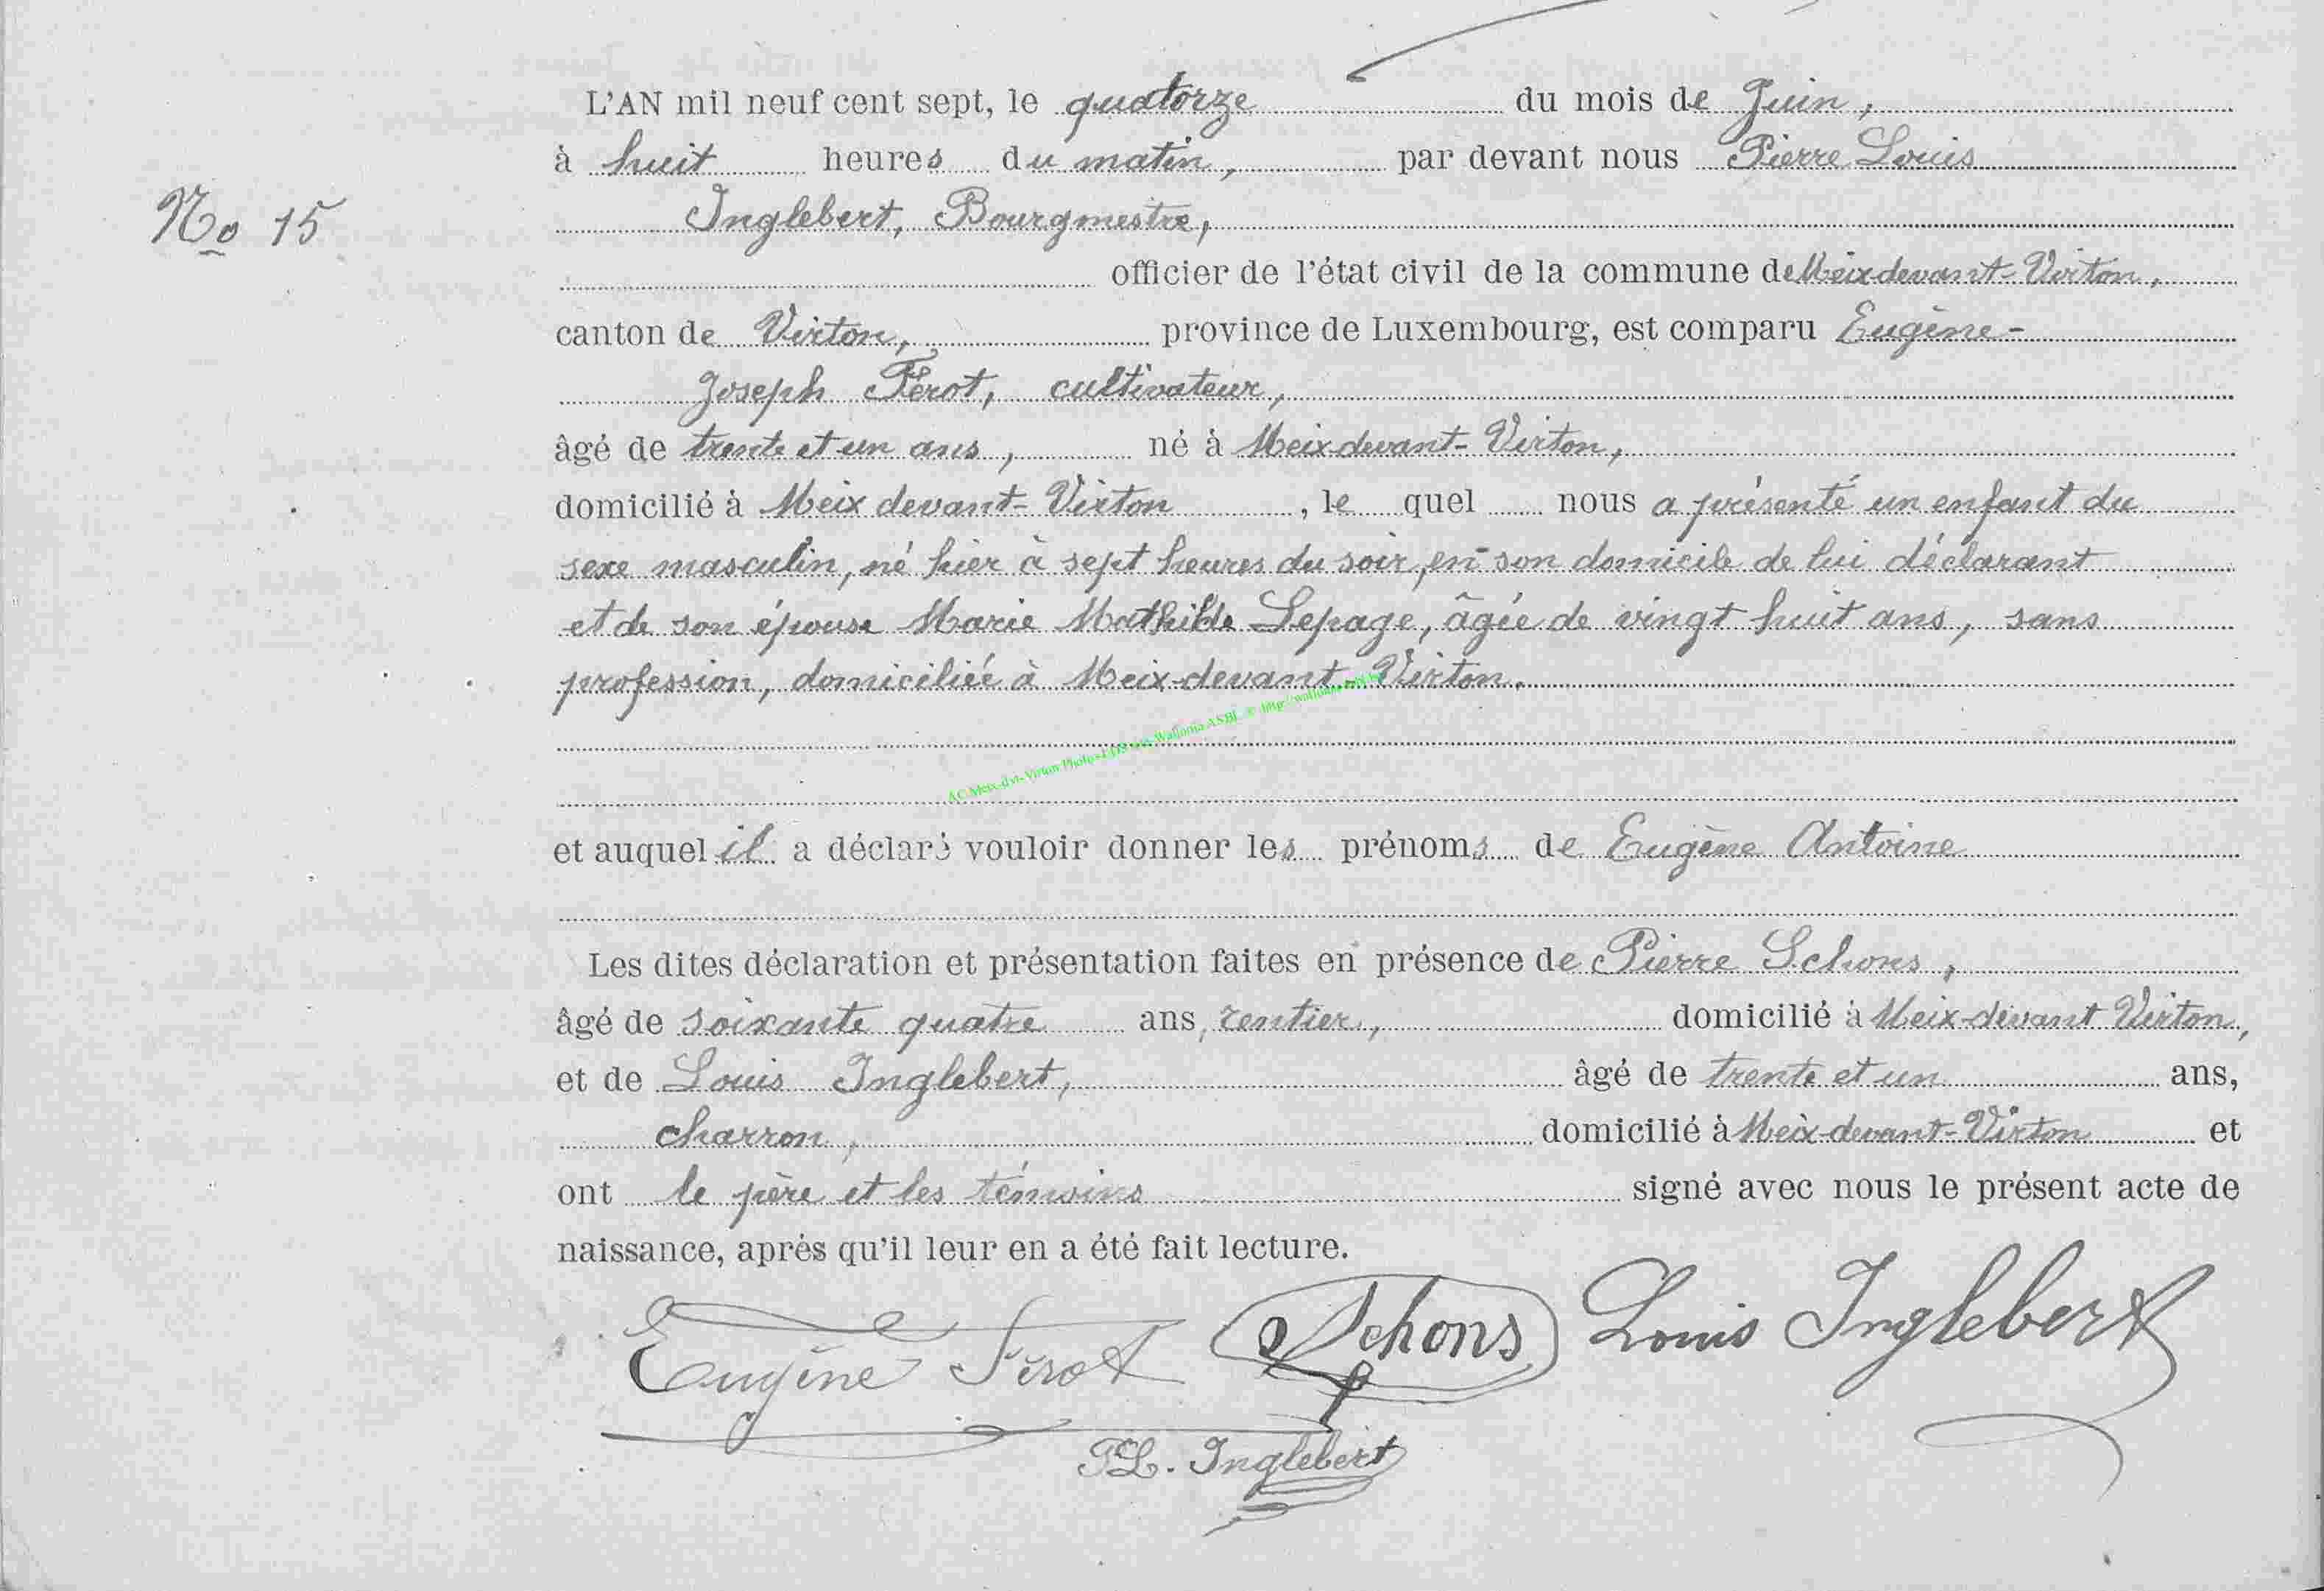 L'AN mil neuf cent sept, le quatorze du mois de Juin,
à huit heures du matin, par devant nous Pierre Louis
No 15
Inglebert, Bourgmestre,
officier de l'état civil de la commune de Meix devant-Virton,
canton de Virton, province de Luxembourg, est comparu Eugène-
Joseph Férot, cultivateur,
âgé de trente et un ans, né à Meix devant-Virton,
domicilié à Meix devant-Virton, le quel nous a présenté un enfant du
sexe masculin, né hier à sept heures du soir, en son domicile de lui déclarant
et de son épouse Marie Mathilde Lepage, âgée de vingt huit ans, sans
profession, domiciliée à Meix-devant-Virton.
AC Meix-dvt-Virton Wallonia ASBL ©
et auquel il a déclaré vouloir donner les prénoms de Eugène Antoine
Les dites déclaration et présentation faites en présence de Pierre Schons,
âgé de soixante quatre ans, rentier, domicilié à Meix-devant Virton,
et de Louis Inglebert, âgé de trente et un ans,
charron, domicilié à Meix-devant-Virton et
ont le père et les témoins signé avec nous le présent acte de
naissance, après qu'il leur en a été fait lecture.
Eugène Férot Schons Louis Inglebert
PL. Inglebert